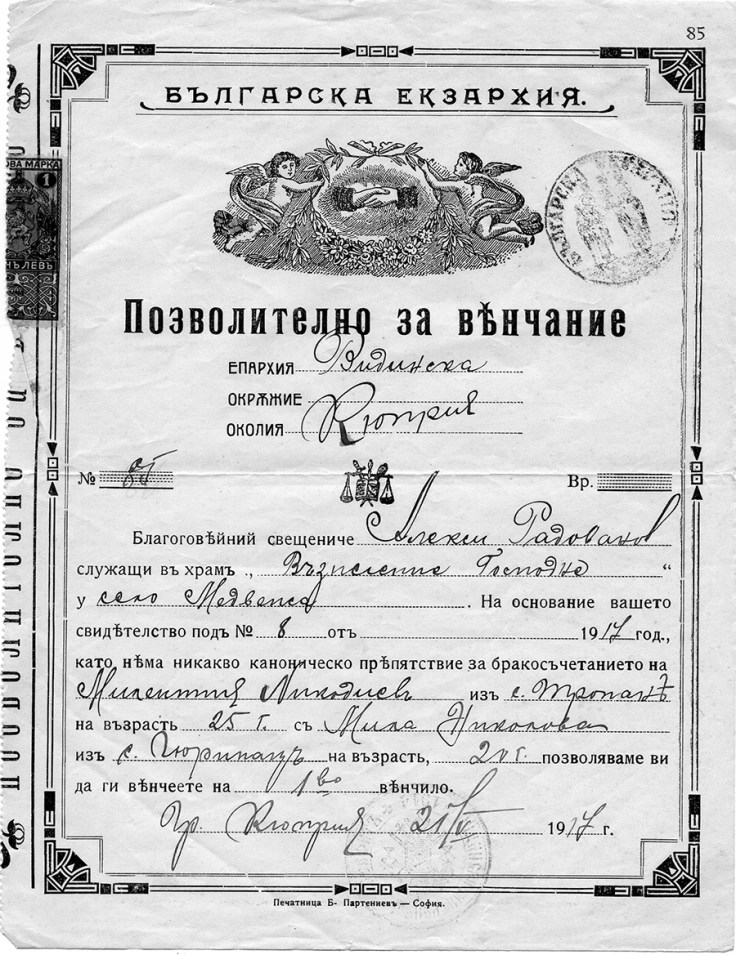 85
БЪЛГАРСКА ЕКЗАРХИЯ.
ОВА МАРКА
1
НЪ ЛЕВЪ
БЪЛГАРСКА ЕКЗАРХИЯ
Позволително за вѣнчание
ЕПАРХИЯ Видинска
ОКРѪЖИЕ
ОКОЛИЯ Кюприя
№ 85 Вр.
Благоговѣйний свещениче Алекси Радованов
служащи въ храмъ „ Възнесение Господне “
у село Медвепа. На основание вашето
свидѣтелство подъ № 8 отъ 1917 год.,
като нѣма никакво каноническо прѣпятствие за бракосъчетанието на
Милентия Никодиевъ изъ с. Тропанѣ
на възрасть 25 г. съ Мила Николова
изъ с. Гюринацъ на възрасть, 20 г. позволяваме ви
да ги вѣнчеете на 1во вѣнчило.
Гр. Кюприя 21/V 1917 г.
Печатница Б- Партениевъ — София.